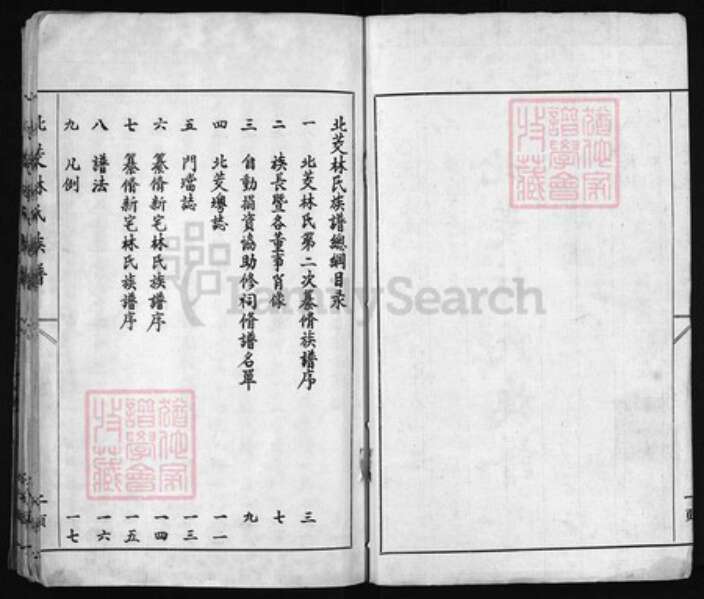 北茭林氏族譜總綱目录
一 北茭林氏第二次纂脩族譜序 三
二 族長暨各董事肖像 七
三 自動捐資協助修祠脩譜名單 九
四 北茭塆誌 一一
五 門璫誌 一三
六 纂脩新宅林氏族譜序 一四
七 纂脩新宅林氏族譜序 一五
八 譜法 一六
九 凡例 一七
北茭林氏族譜
二頁
一頁
FamilySearch
譜學會
收藏
譜學會
收藏